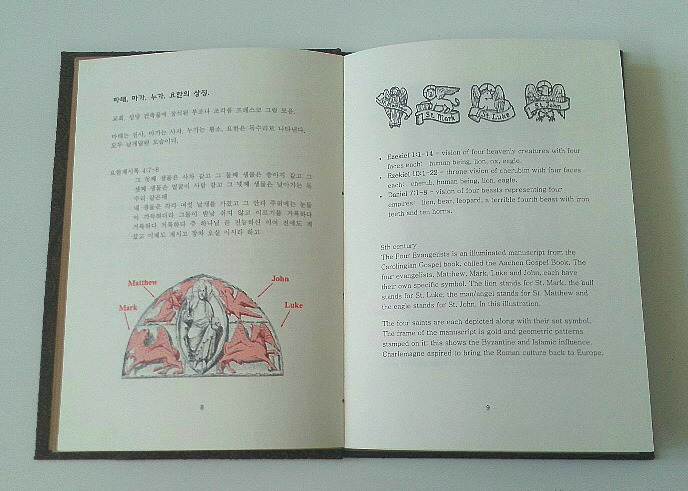 마태, 마가, 누가, 요한의 상징.
교회, 성당 건축물에 장식된 부조나 조각을 프레스코 그림 모음.
마태는 천사, 마가는 사자, 누가는 황소, 요한은 독수리로 나타낸다.
모두 날개달린 모습이다.
요한계시록 4:7-8
그 첫째 생물은 사자 같고 그 둘째 생물은 송아지 같고 그
셋째 생물은 얼굴이 사람 같고 그 넷째 생물은 날아가는 독
수리 같은데
네 생물은 각각 여섯 날개를 가졌고 그 안과 주위에는 눈들
이 가득하더라 그들이 밤낮 쉬지 않고 이르기를 거룩하다
거룩하다 거룩하다 주 하나님 곧 전능하신 이여 전에도 계
셨고 이제도 계시고 장차 오실 이시라 하고
Matthew
John
Mark
Luke
8
St. Mark
St. Luke
St. John
• Ezekiel 1:1-14 - vision of four heavenly creatures with four
faces each: human being, lion, ox, eagle.
• Ezekiel 10:1-22 - throne vision of cherubim with four faces
each: cherub, human being, lion, eagle.
• Daniel 7:1-8 - vision of four beasts representing four
empires: lion, bear, leopard, a terrible fourth beast with iron
teeth and ten horns.
th century
The Four Evangelists is an illuminated manuscript from the
Carolingian Gospel book, called the Aachen Gospel Book. The
four evangelists, Matthew, Mark, Luke and John, each have
their own specific symbol. The lion stands for St. Mark, the bull
stands for St. Luke, the man/angel stands for St. Matthew and
the eagle stands for St. John. In this illustration.
The four saints are each depicted along with their set symbol.
The frame of the manuscript is gold and geometric patterns
stamped on it: this shows the Byzantine and Islamic influence.
Charlemagne aspired to bring the Roman culture back to Europe.
9